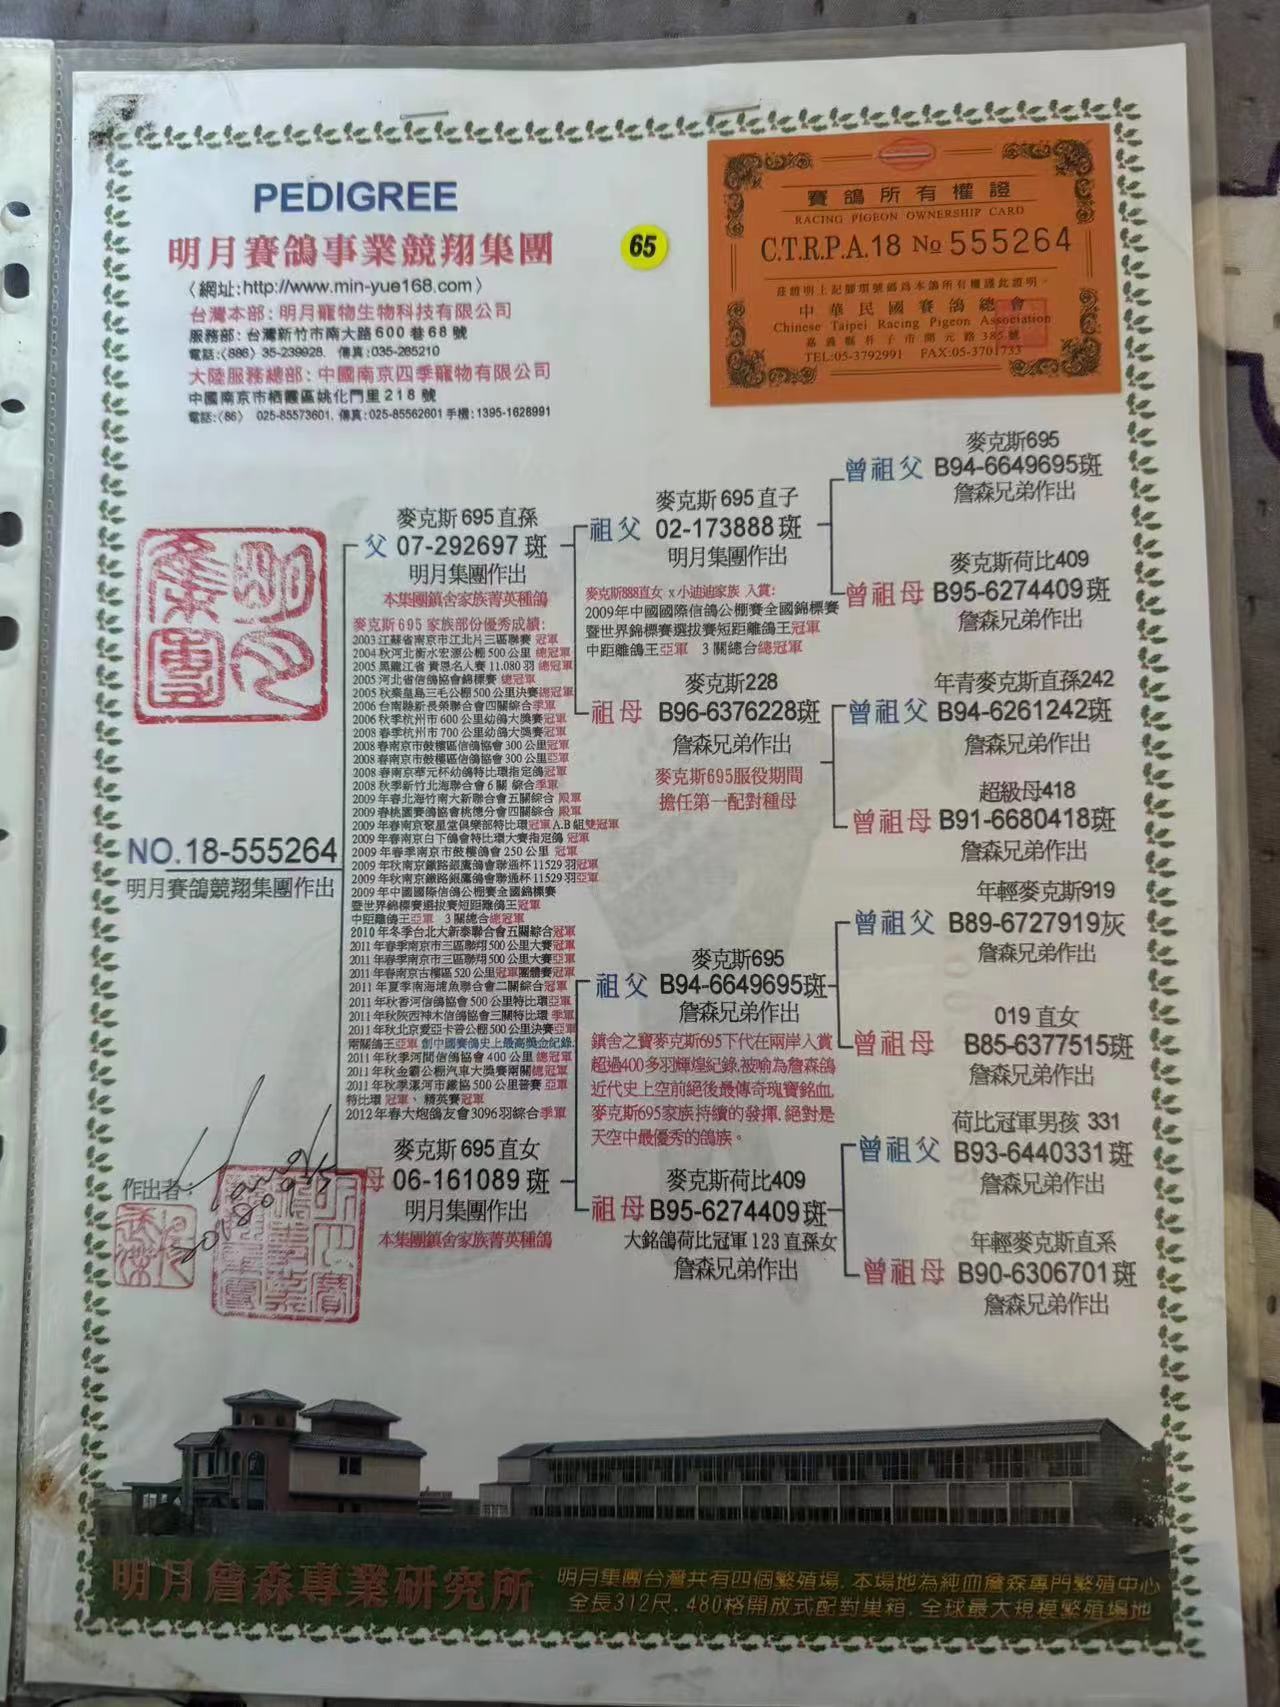 PEDIGREE
明月賽鴿事業競翔集團
〈網址:http://www.min-yue168.com〉
台灣本部: 明月寵物生物科技有限公司
服務部: 台灣新竹市南大路600巷68號
電話:(886) 35-239928. 傳真:035-265210
大陸服務總部: 中國南京四季寵物有限公司
中國南京市栖霞區姚化門里218號
電話:(86) 025-85573601. 傳真:025-85562601 手機:1395-1628991
65
賽鴿所有權證
RACING PIGEON OWNERSHIP CARD
C.T.R.P.A.18 No 555264
茲證明上記腳環號碼為本鴿所有權謹此證明。
中華民國賽鴿總會
Chinese Taipei Racing Pigeon Association
嘉義縣朴子市開元路385號
TEL:05-3792991 FAX:05-3701733
NO.18-555264
明月賽鴿競翔集團作出
麥克斯 695 直孫
父 07-292697 斑
明月集團作出
本集團鎮舍家族菁英種鴿
麥克斯 695 家族部份優秀成績:
2003 江蘇省南京市江北片三區聯賽 冠軍
2004 秋河北衡水宏源公棚 500 公里 總冠軍
2005 黑龍江省 貴恩名人賽 11.080 羽 總冠軍
2005 河北省信鴿協會錦標賽 總冠軍
2005 秋秦皇島三毛公棚 500 公里決賽總冠軍
2006 台南縣新長榮聯合會四關綜合季軍
2006 秋季杭州市 600 公里幼鴿大獎賽冠軍
2008 春季杭州市 700 公里幼鴿大獎賽冠軍
2008 春南京市鼓樓區信鴿協會 300 公里冠軍
2008 春南京市鼓樓區信鴿協會 300 公里亞軍
2008 春南京華元杯幼鴿特比環指定鴿冠軍
2008 秋季新竹北海聯合會 6 關 綜合季軍
2009 年春北海竹南大新聯合會五關綜合 殿軍
2009 春桃園賽鴿協會桃德分會四關綜合 殿軍
2009 年春南京翠星堂俱樂部特比環冠軍 A.B 組雙冠軍
2009 年春南京白下鴿會特比環大賽指定鴿 冠軍
2009 年春季南京市鼓樓鴿會 250 公里 冠軍
2009 年秋南京鐵路銀鷹鴿會聯通杯 11529 羽冠軍
2009 年秋南京鐵路銀鷹鴿會聯通杯 11529 羽亞軍
2009 年中國國際信鴿公棚賽全國錦標賽
暨世界錦標賽選拔賽短距離鴿王冠軍
中距離鴿王亞軍 3 關總合總冠軍
2010 年冬季台北大新泰聯合會五關綜合冠軍
2011 年春季南京市三區聯翔 500 公里大賽冠軍
2011 年春季南京市三區聯翔 500 公里大賽亞軍
2011 年春南京古樓區 520 公里冠軍團體賽冠軍
2011 年夏季南海浦魚聯合會二關綜合冠軍
2011 年秋香河信鴿協會 500 公里特比環亞軍
2011 年秋陝西神木信鴿協會三關特比環 季軍
2011 年秋北京愛亞卡普公棚 500 公里決賽亞軍
兩關鴿王亞軍 創中國賽鴿史上最高獎金紀錄.
2011 年秋季河間信鴿協會 400 公里 總冠軍
2011 年秋金霸公棚汽車大獎賽兩關總冠軍
2011 年秋季漯河市鐵協 500 公里普賽 亞軍
特比環 冠軍、精英賽冠軍
2012 年春大炮鴿友會 3096 羽綜合季軍
麥克斯 695 直女
母 06-161089 斑
明月集團作出
本集團鎮舍家族菁英種鴿
麥克斯 695 直子
祖父 02-173888 斑
明月集團作出
麥克斯888直女 x 小迪迪家族 入賞:
2009年中國國際信鴿公棚賽全國錦標賽
暨世界錦標賽選拔賽短距離鴿王冠軍
中距離鴿王亞軍 3 關總合總冠軍
麥克斯228
祖母 B96-6376228斑
詹森兄弟作出
麥克斯695服役期間
擔任第一配對種母
麥克斯695
祖父 B94-6649695斑
詹森兄弟作出
鎮舍之寶麥克斯695下代在兩岸入賞
超過400多羽輝煌紀錄.被喻為詹森鴿
近代史上空前絕後最傳奇瑰寶銘血.
麥克斯695家族持續的發揮.絕對是
天空中最優秀的鴿族。
麥克斯荷比409
祖母 B95-6274409斑
大銘鴿荷比冠軍 123 直孫女
詹森兄弟作出
麥克斯695
曾祖父 B94-6649695斑
詹森兄弟作出
麥克斯荷比409
曾祖母 B95-6274409斑
詹森兄弟作出
年青麥克斯直孫242
曾祖父 B94-6261242斑
詹森兄弟作出
超級母418
曾祖母 B91-6680418斑
詹森兄弟作出
年輕麥克斯919
曾祖父 B89-6727919灰
詹森兄弟作出
019 直女
曾祖母 B85-6377515斑
詹森兄弟作出
荷比冠軍男孩 331
曾祖父 B93-6440331斑
詹森兄弟作出
年輕麥克斯直系
曾祖母 B90-6306701斑
詹森兄弟作出
作出者:
明月詹森專業研究所
明月集團台灣共有四個繁殖場.本場地為純血詹森專門繁殖中心
全長312尺.480格開放式配對巢箱.全球最大規模繁殖場地